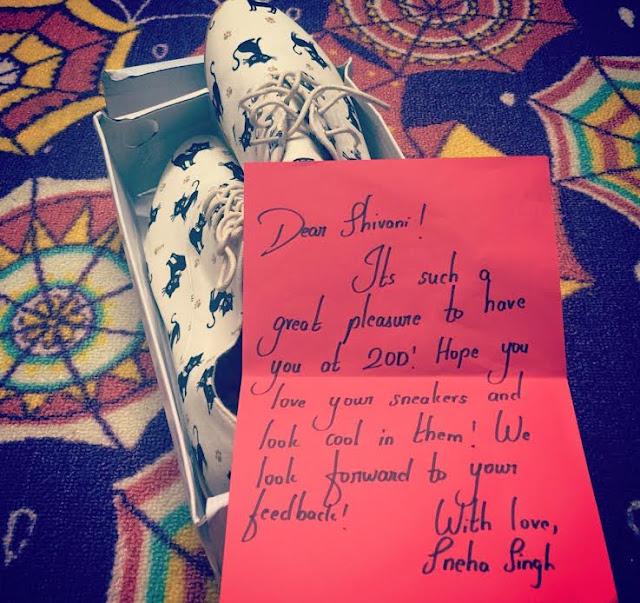 Dear Shivani!
Its such a
great pleasure to have
you at 20D! Hope you
love your sneakers and
look cool in them! We
look forward to your
feedback!
With love,
Sneha Singh